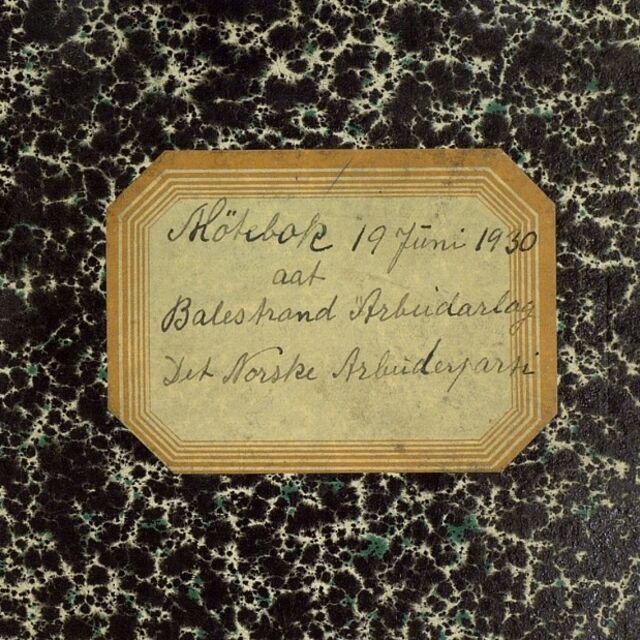 Mötebok 19 Juni 1930
aat
Balestrand Arbeidarlag
Det Norske Arbeiderparti